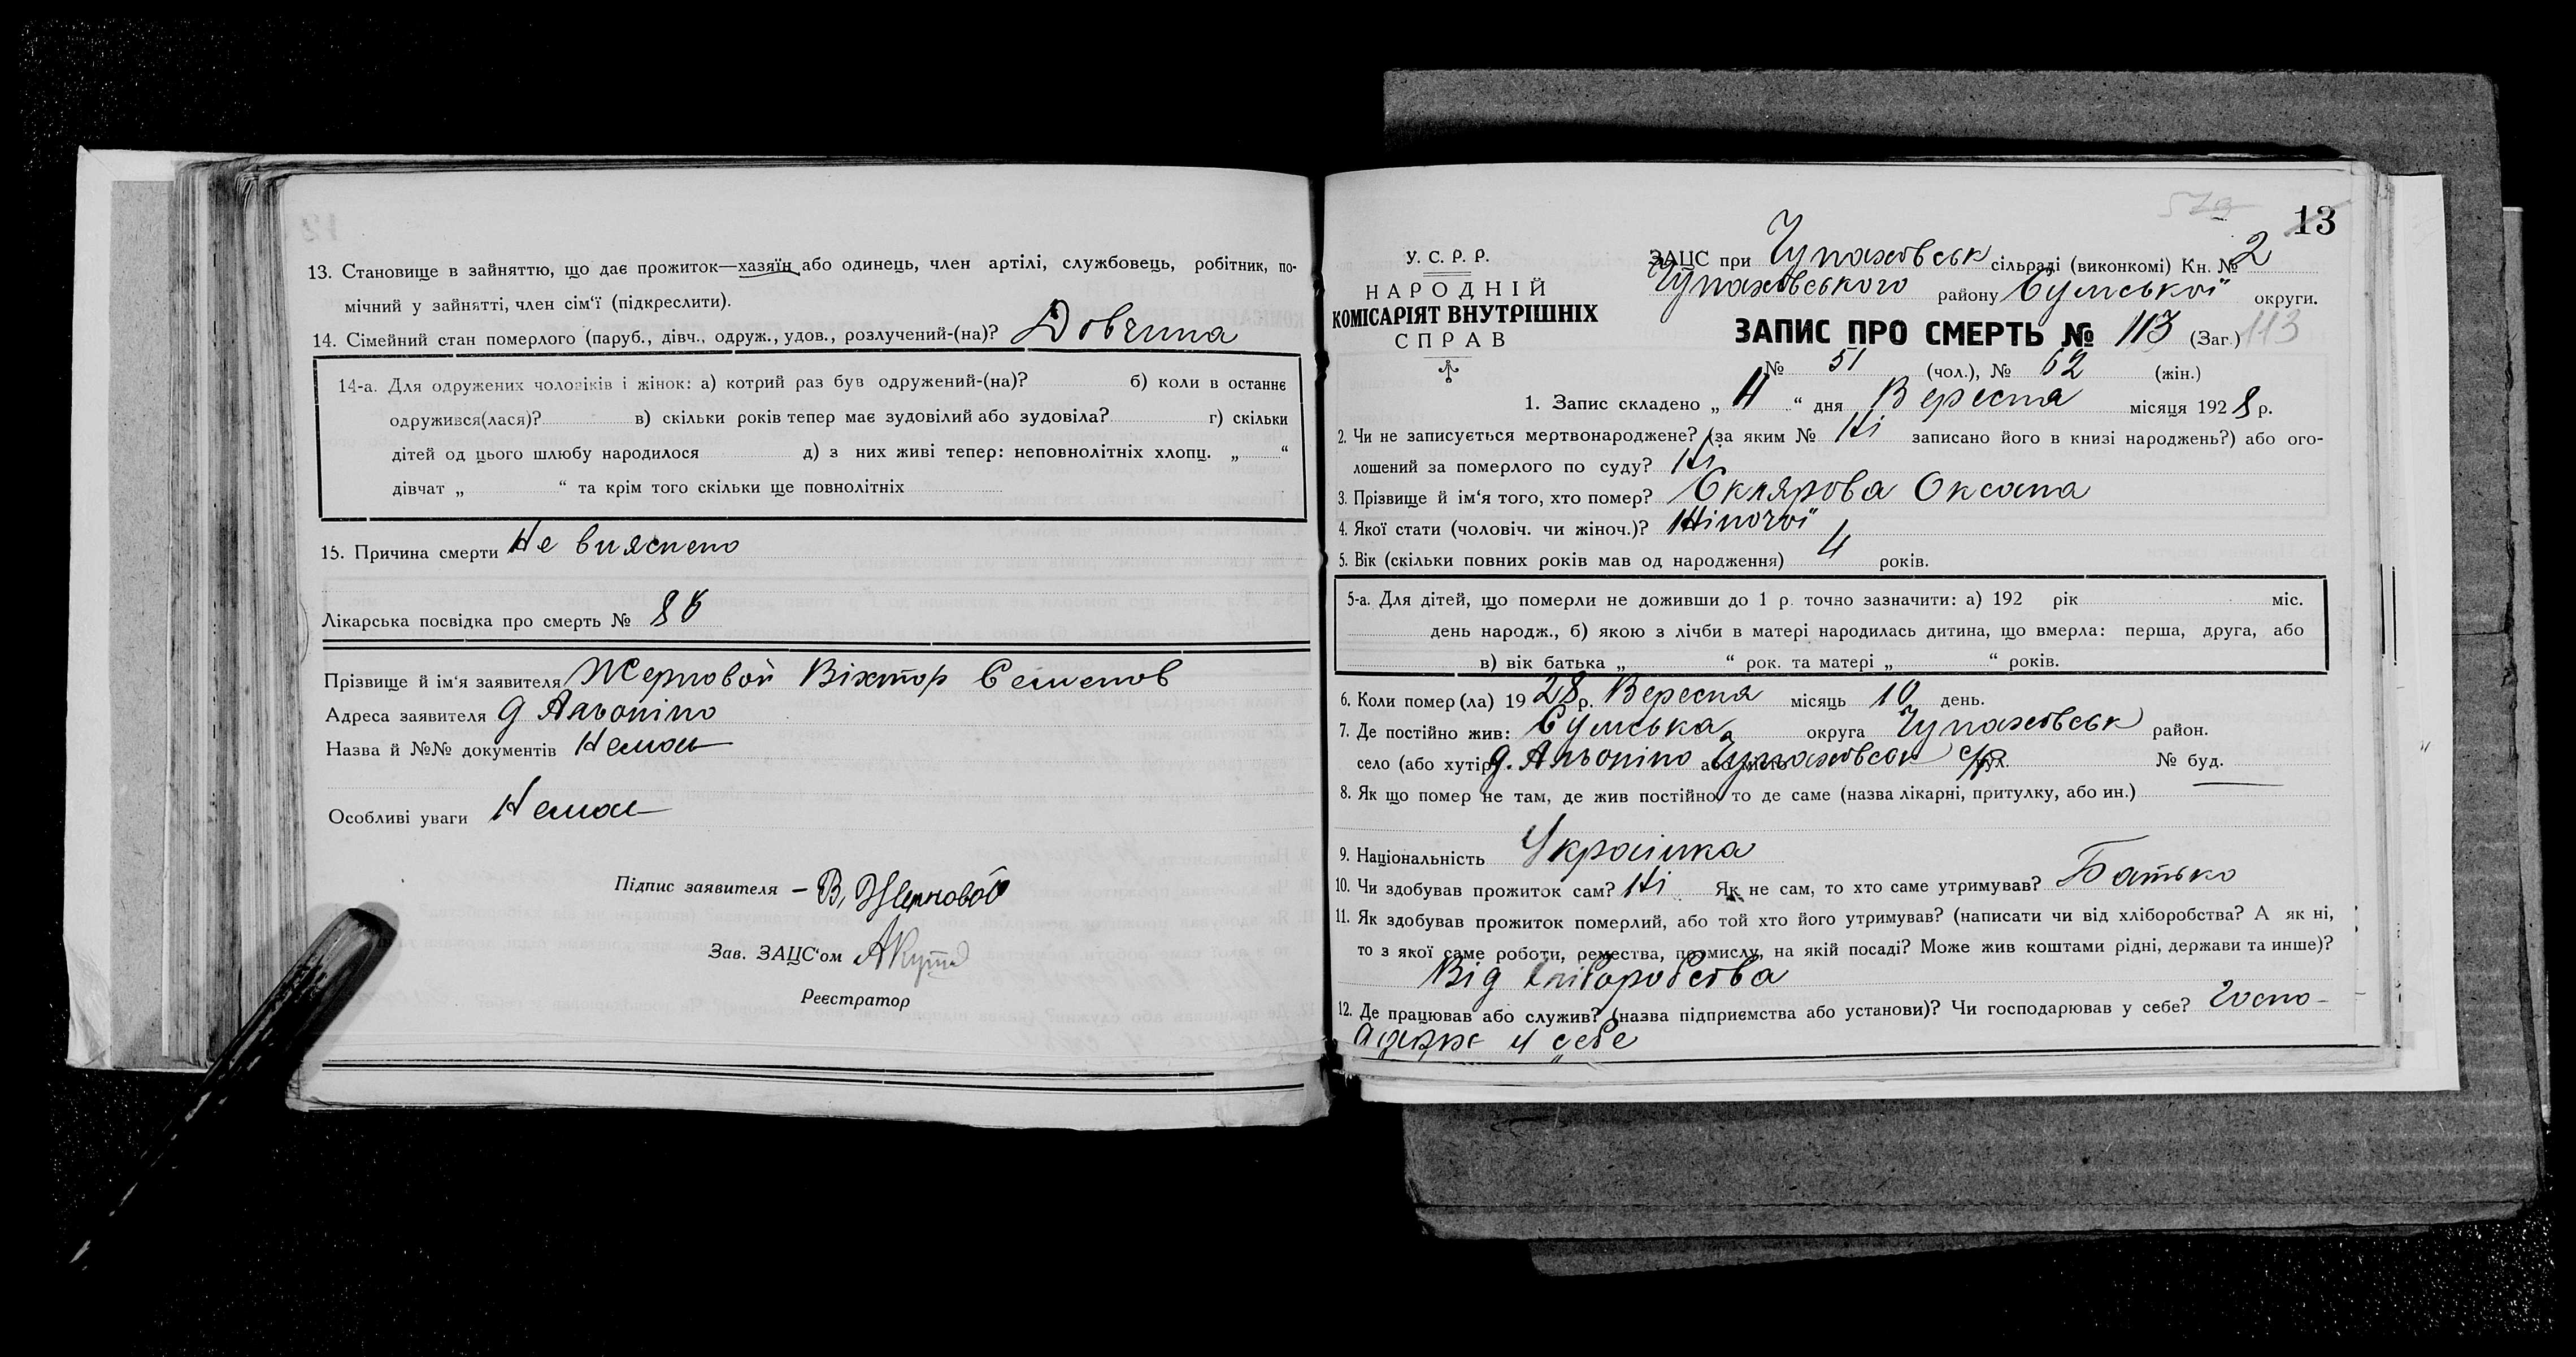 13. Становище в зайняттю, що дає прожиток—хазяїн або одинець, член артілі, службовець, робітник, по-
мічний у зайнятті, член сім'ї (підкреслити).
14. Сімейний стан померлого (паруб., дівч., одруж., удов., розлучений-(на)? Довчина
14-а. Для одружених чоловіків і жінок: а) котрий раз був одружений-(на)? б) коли в останнє
одружився(лася)? в) скільки років тепер має зудовілий або зудовіла? г) скільки
дітей од цього шлюбу народилося д) з них живі тепер: неповнолітніх хлопц. „ “
дівчат „ “ та крім того скільки ще повнолітніх
15. Причина смерти Не вияснено
Лікарська посвідка про смерть № 86
Прізвище й ім'я заявителя Жерновой Віхтор Семенов
Адреса заявителя д Альоніно
Назва й №№ документів Немає
Особливі уваги Немає
Підпис заявителя – В, Жерновой
Зав. ЗАЦС'ом
Реєстратор
13
У. С. Р. Р.
НАРОДНІЙ
КОМІСАРІЯТ ВНУТРІШНІХ
СПРАВ
ЗАЦС при Чупаховськ сільраді (виконкомі) Кн. № 2
Чупаховського району Сумської округи.
ЗАПИС ПРО СМЕРТЬ № 113 (Заг.) 113
№ 51 (чол.), № 62 (жін.)
1. Запис складено „ “ дня Вересня місяця 1928 р.
2. Чи не записується мертвонароджене? (за яким № Ні записано його в книзі народжень?) або ого-
лошений за померлого по суду? Ні
3. Прізвище й ім'я того, хто помер? Склярова Оксана
4. Якої стати (чоловіч. чи жіноч.)? Жіночої
5. Вік (скільки повних років мав од народження) 4 років.
5-а. Для дітей, що померли не доживши до 1 р. точно зазначити: а) 192 рік міс.
день народж., б) якою з лічби в матері народилась дитина, що вмерла: перша, друга, або
в) вік батька „ “ рок. та матері „ “ років.
6. Коли помер(ла) 1928 р. Вересня місяць 10 день.
7. Де постійно жив: Сумська округа Чупаховськ район.
село (або хутір) д. Альоніно або місто Чупаховськ с/р вул. № буд.
8. Як що помер не там, де жив постійно, то де саме (назва лікарні, притулку, або ин.)
9. Національність Украінка
10. Чи здобував прожиток сам? Ні Як не сам, то хто саме утримував? Батько
11. Як здобував прожиток померлий, або той хто його утримував? (написати чи від хліборобства? А як ні,
то з якої саме роботи, ремества, промислу, на якій посаді? Може жив коштами рідні, держави та инше)?
Від хліборобства
12. Де працював або служив? (назва підприємства або установи)? Чи господарював у себе? Госпо-
дарює у себе